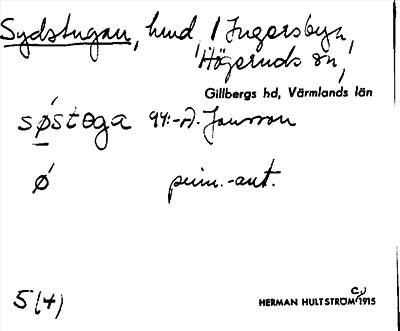 Sydstugan, hmd, i Ingersbyn,
Högeruds sn,
Gillbergs hd, Värmlands län
søstøga 94:-A. Jansson
ǿ prim.-ant.
5(4)
HERMAN HULTSTRÖM 1915